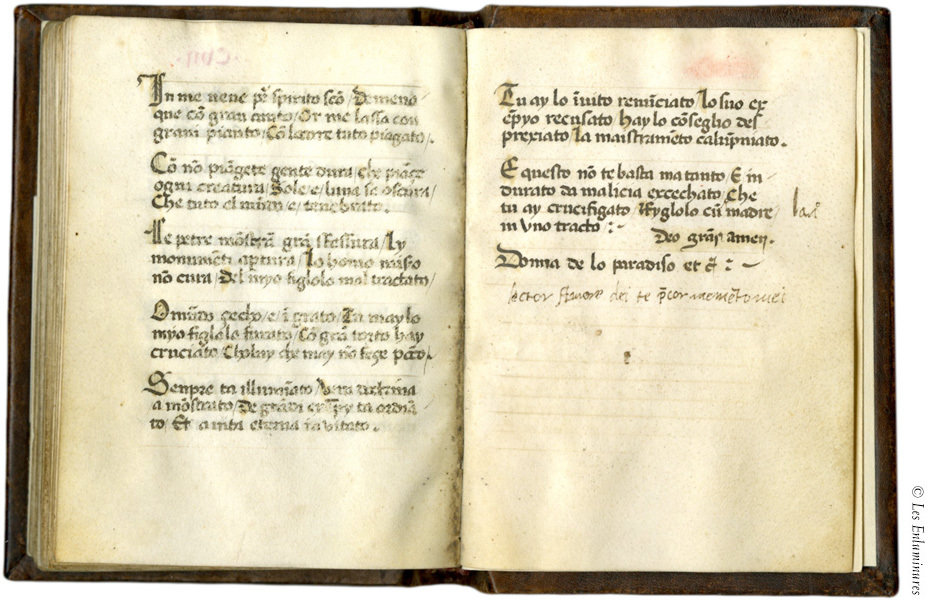 In me vene per spirito scō / De meno
que cō gran canto / Or me lassa con
grani pianto / Cō lacore tuto piagato /.
Cō nō piāgete gente dura / che piāge
ogni creatura / Sole / e / luna se oscura /
Che tuto el mūdo / e / tenebrato .
Le petre mōstrā grā fessura / Ly
monumēti aptura / Lo homo misso
nō cura / Del myo figlolo mal tractato /
O mūdo cecho / e / īgrato / Tu may lo
myo figlolo furato / Cō grā torto hay
cruciato / che may nō feçe
Senpre ta illumīato / vera doctrina
a mōstrato / De grādi ta ordīa
to / Et a vita eterna ta vitato .
Tu ay lo īuito renūciato / Lo suo ex
ēpyo recusato / hay lo cōseglio des
prexiato / La maistramēto calūpniato .
E questo nō te basta ma tanto / E in
durato da malicia excechato / Che
tu ay crucifigato / fyglolo cū madre /
in vno tracto /
Deo grās amen .
Donna de lo paradiso et c̄
lector Amore dei te p̄cor memēto mei
© Les Enluminures